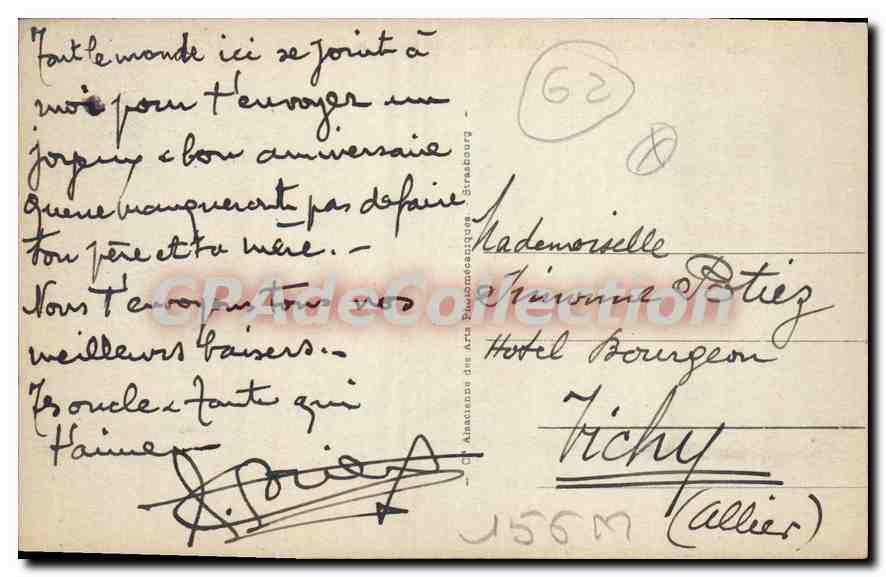 Tout le monde ici se joint à
moi pour t'envoyer un
joyeux & bon anniversaire
que ne manqueront pas de faire
ton père et ta mère. -
Nous t'envoyons tous nos
meilleurs baisers. -
Tes oncle & Tante qui
t'aiment
62
- Cie Alsacienne des Arts Photomécaniques, Strasbourg -
CPAdeCollection
Mademoiselle
Potiez
Hotel Bourgeon
Vichy
(Allier)
156M